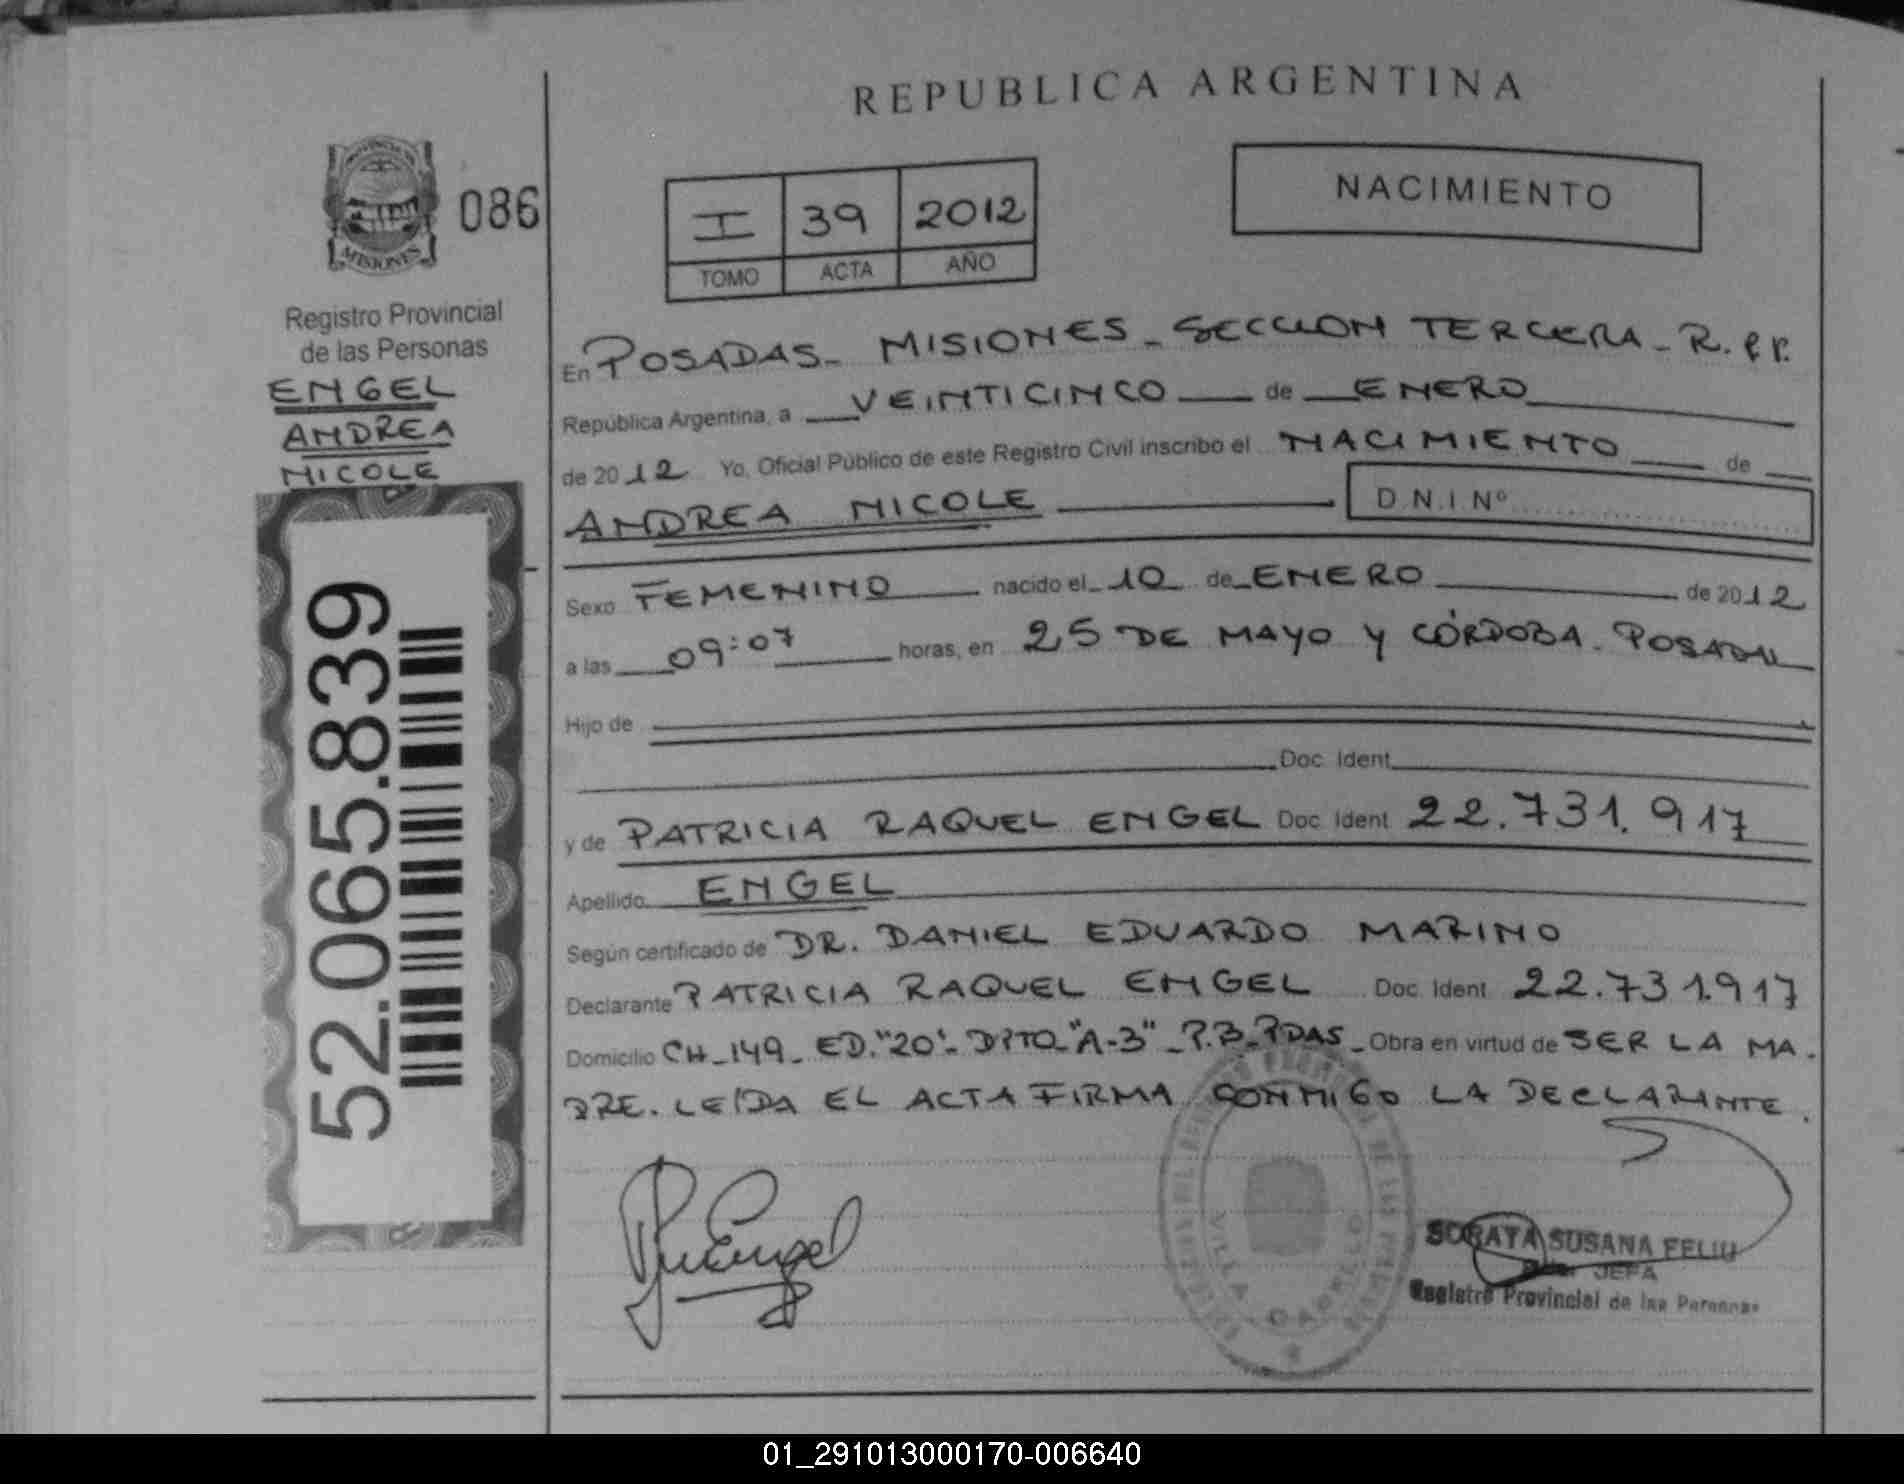 REPUBLICA ARGENTINA
NACIMIENTO
PROVINCIA DE
MISIONES
086
I 39 2012
TOMO ACTA AÑO
Registro Provincial
de las Personas
ENGEL
ANDREA
NICOLE
52.065.839
En POSADAS - MISIONES - SECCION TERCERA - R.P.P.
República Argentina, a VEINTICINCO de ENERO
de 2012 Yo, Oficial Público de este Registro Civil inscribo el NACIMIENTO de
ANDREA NICOLE D.N.I. Nº
Sexo FEMENINO nacido el 10 de ENERO de 2012
a las 09:07 horas, en 25 DE MAYO Y CÓRDOBA. POSADAS
Hijo de
Doc. Ident.
y de PATRICIA RAQUEL ENGEL Doc. Ident. 22.731.917
Apellido ENGEL
Según certificado de DR. DANIEL EDUARDO MARINO
Declarante PATRICIA RAQUEL ENGEL Doc. Ident. 22.731.917
Domicilio CH-149- ED."20"- DPTO-"A-3" - P.B-PDAS- Obra en virtud de SER LA MA-
DRE. LEIDA EL ACTA FIRMA CONMIGO LA DECLARANTE.
VILLA CABELLO
SORAYA SUSANA FELIU
JEFA
Registro Provincial de las Personas
01_291013000170-006640